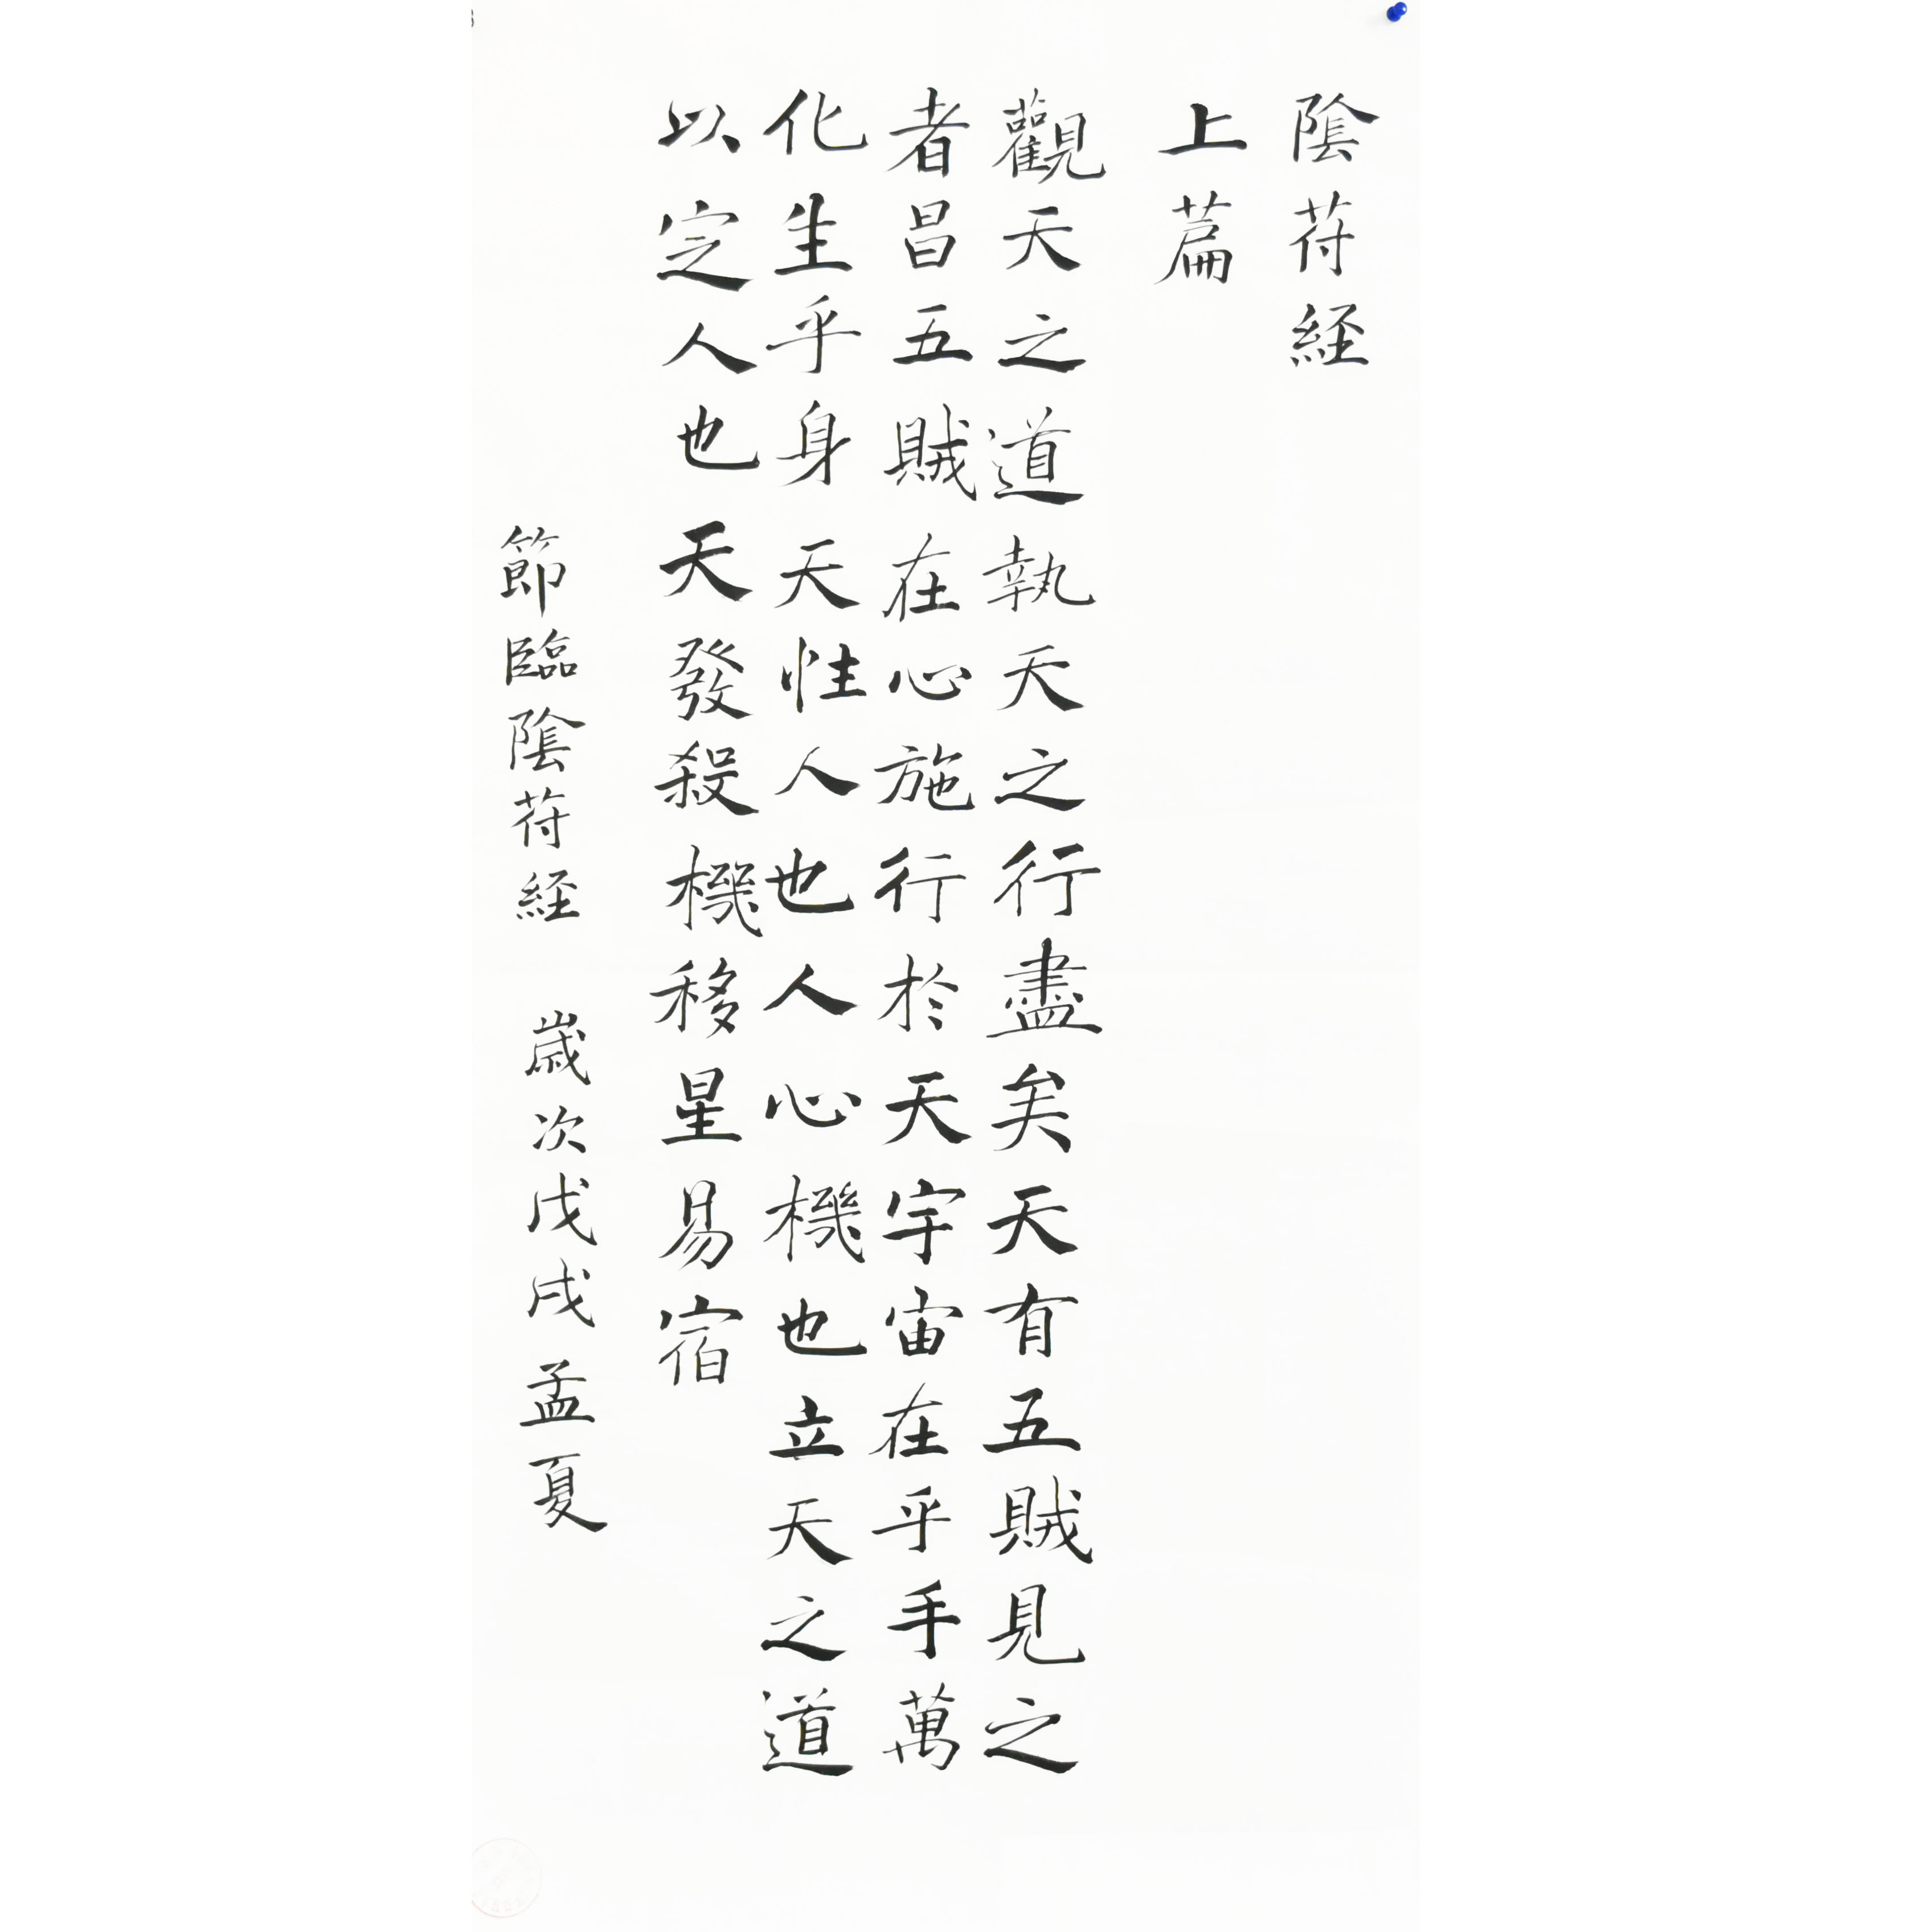 陰符経
上篇
觀天之道執天之行盡矣天有五賊見之
者昌五賊在心施行於天宇宙在乎手萬
化生乎身天性人也人心機也立天之道
以定人也天發殺機移星易宿
節臨陰符経 歲次戊戌 孟夏